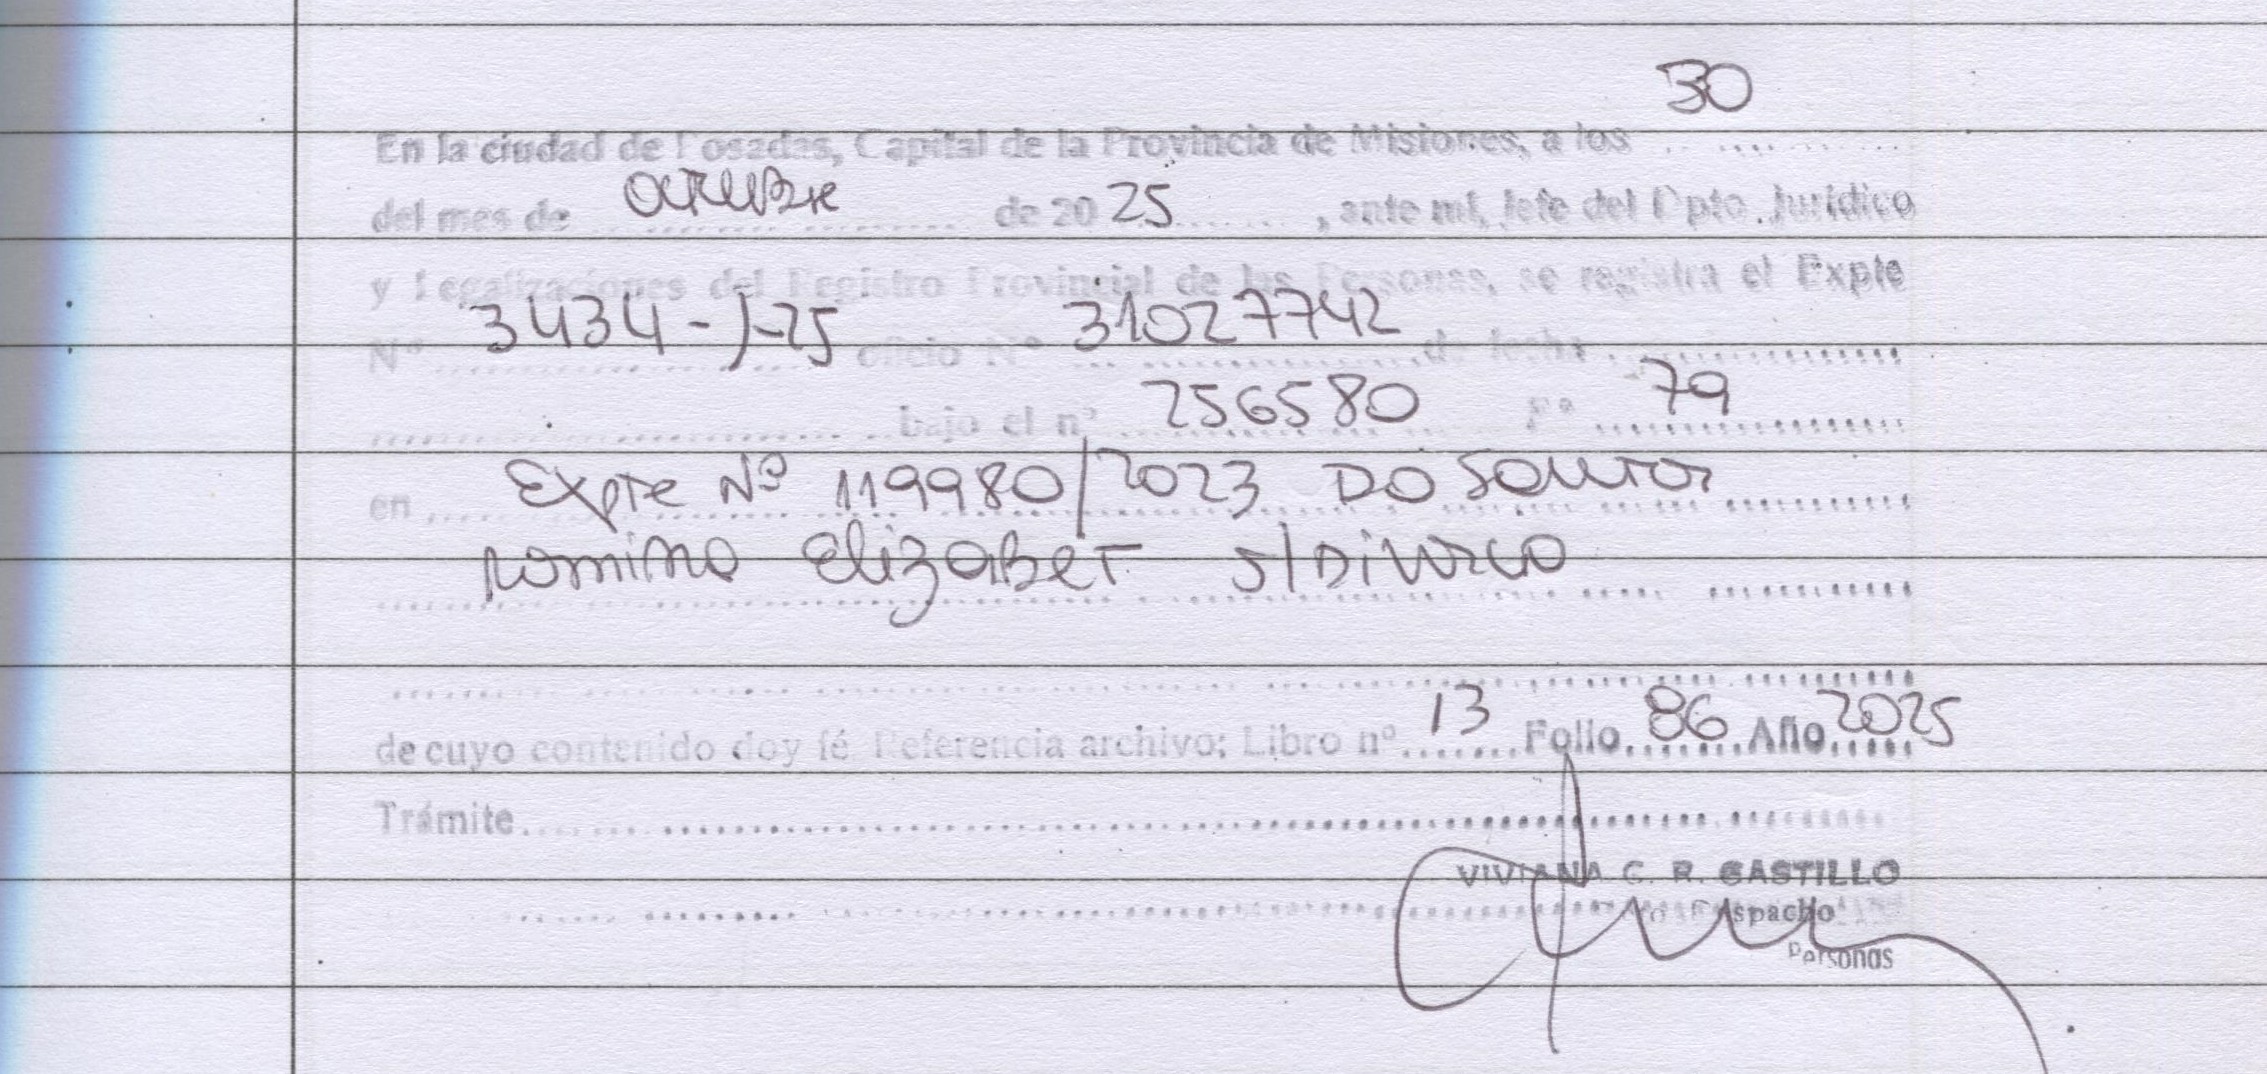 30
En la ciudad de Posadas, Capital de la Provincia de Misiones, a los ..............
del mes de octubre de 20 25 , ante mí, Jefe del Dpto. Jurídico
y Legalizaciones del Registro Provincial de las Personas, se registra el Expte
Nº 3434-J-25 oficio Nº 31027742 de fecha ..............
bajo el nº 256580 Fº 79
en Expte Nº 119980/2023 DO Santos
Romina Elizabet s/Divorcio
de cuyo contenido doy fé. Referencia archivo: Libro nº 13 Folio 86 Año 2025
Trámite ..............
VIVIANA C. R. CASTILLO
Despacho
Personas